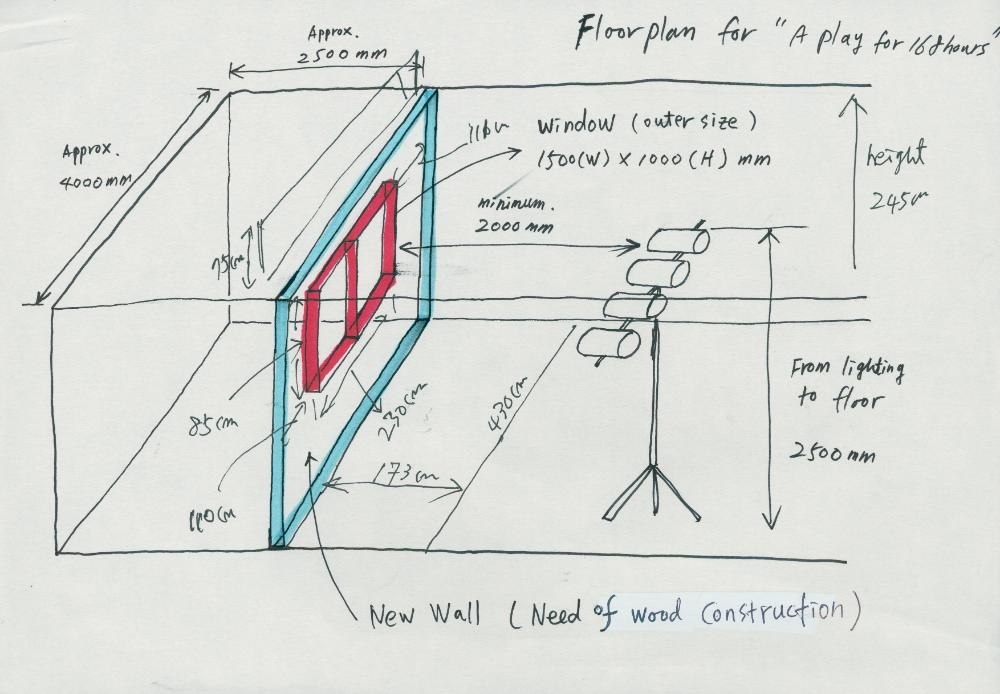 Floorplan for "A play for 168hours"
Approx.
2500 mm
Approx.
4000mm
Window (outer size)
1500(W) × 1000(H) mm
minimum.
2000 mm
height
245cm
75cm
85cm
110cm
230cm
430cm
173cm
From lighting
to floor
2500mm
New Wall (Need of wood construction)